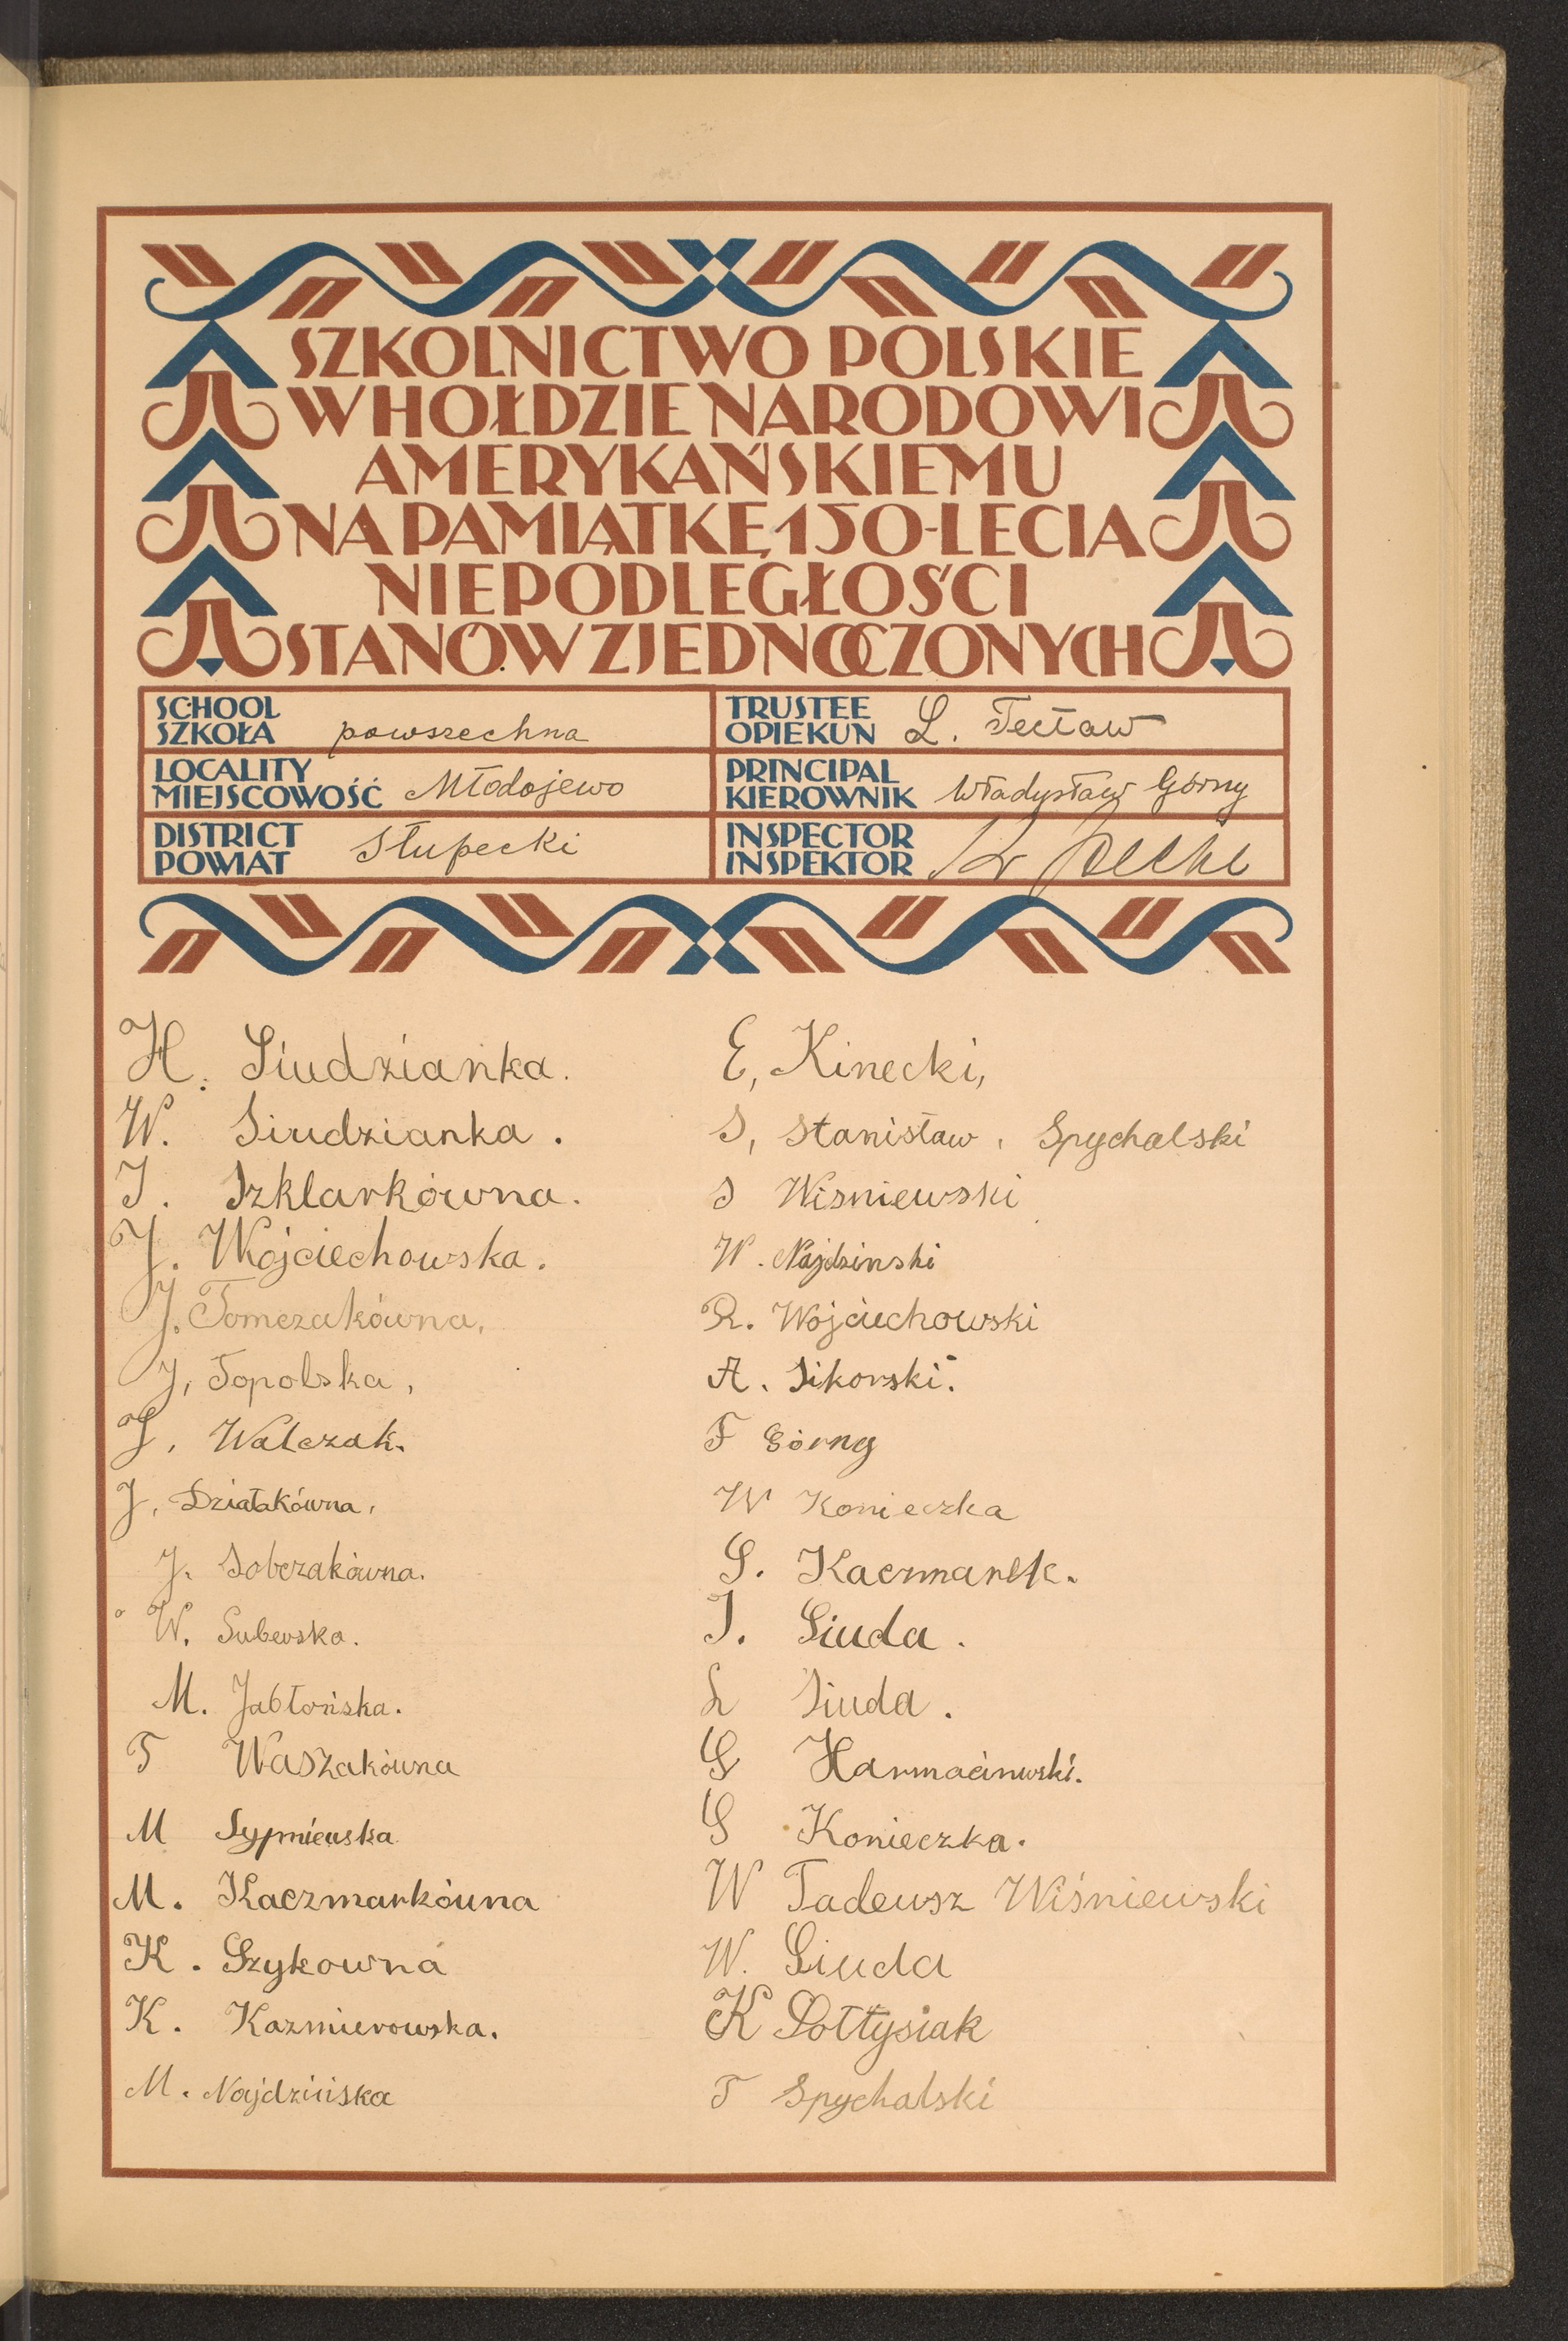 SZKOLNICTWO POLSKIE
W HOŁDZIE NARODOWI
AMERYKAŃSKIEMU
NA PAMIĄTKĘ 150-LECIA
NIEPODLEGŁOŚCI
STANÓW ZJEDNOCZONYCH
SCHOOL
SZKOŁA powszechna
TRUSTEE
OPIEKUN L.
LOCALITY
MIEJSCOWOŚĆ Młodojewo
PRINCIPAL
KIEROWNIK Władysław Górny
DISTRICT
POWIAT Słupecki
INSPECTOR
INSPEKTOR
H. Siudzianka.
W. Siudzianka.
I. Szklarkówna.
J. Wojciechowska.
J. Tomczakówna,
J, Topolska,
J, Walczak.
J, Działakówna,
J. Sobczakówna.
W.
M. Jabłońska.
T Waszakówna
M Sypniewska
M. Kaczmarkówna
K. Szykowna
K. Kazmierowska.
M. Najdzińska
E, Kinecki,
S, Stanisław, Spychalski
S Wisniewski
W. Najdzinski
R. Wojciechowski
A. Sikorski.
F Górny
W Konieczka
S. Kaczmarek.
I. Siuda.
L Siuda.
S
S Konieczka.
W Tadeusz Wiśniewski
W. Siuda
K Sołtysiak
T Spychalski